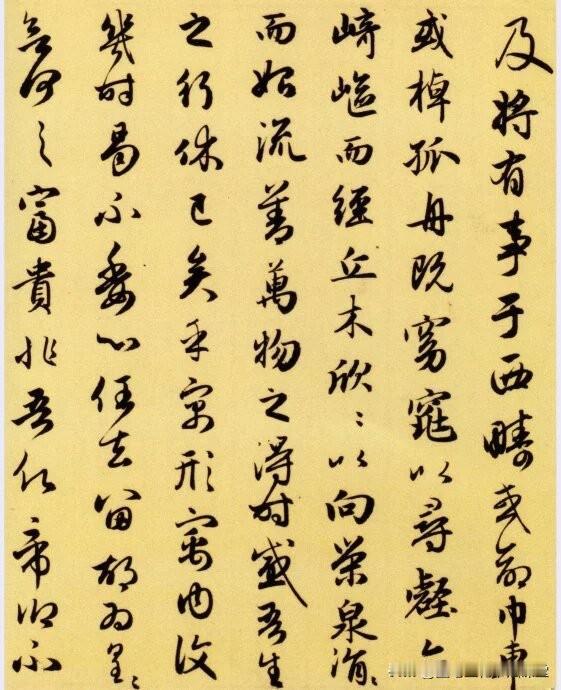 及將有事于西疇或命巾車
或棹孤舟既窈窕以尋壑亦
崎嶇而經丘木欣〻以向榮泉涓〻
而始流善萬物之得時感吾生
之行休已矣乎寓形寓内復
幾時曷不委心任去留胡為皇〻
何之富貴非吾願帝鄉不